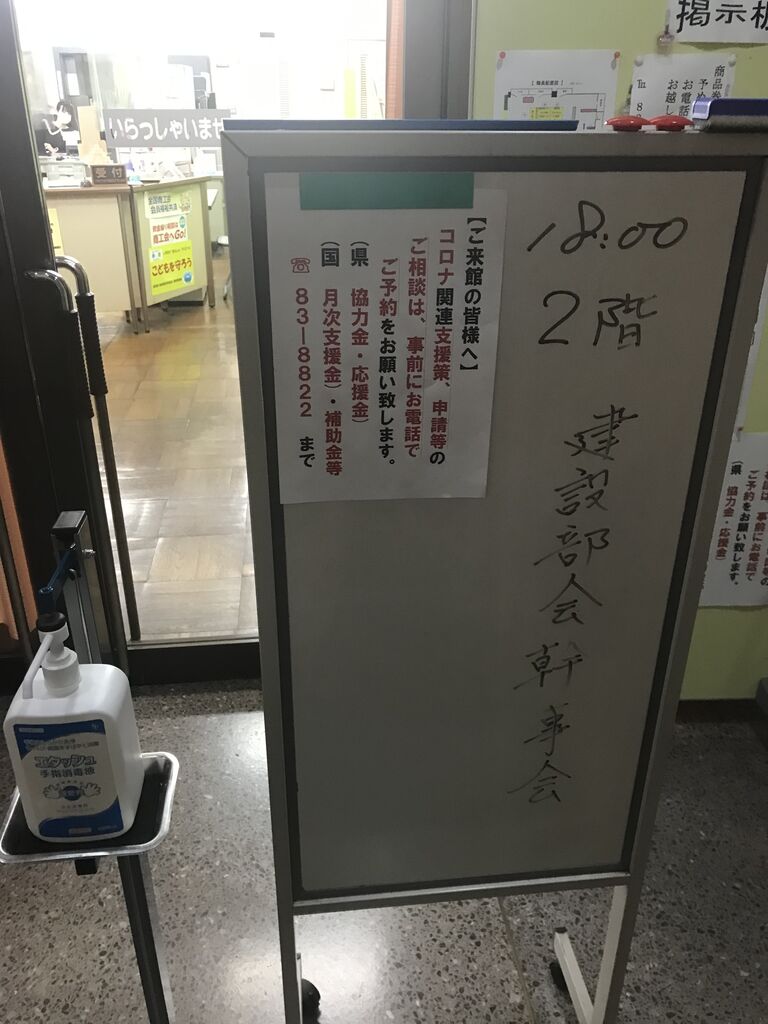 掲示板
【職員配置図】
商品券
お電話
いらっしゃいませ
受付
全国商工会
会員福祉共済
商工会へGo!
こどもを守ろう
【ご来館の皆様へ】
コロナ関連支援策、申請等の
ご相談は、事前にお電話で
ご予約をお願い致します。
(県 協力金・応援金)
(国 月次支援金)・補助金等
☎ 83-8822 まで
18:00
2階
建設部会幹事会
ご予約をお願い致します。
(県 協力金・応援金)
エタッシュ
手指消毒液